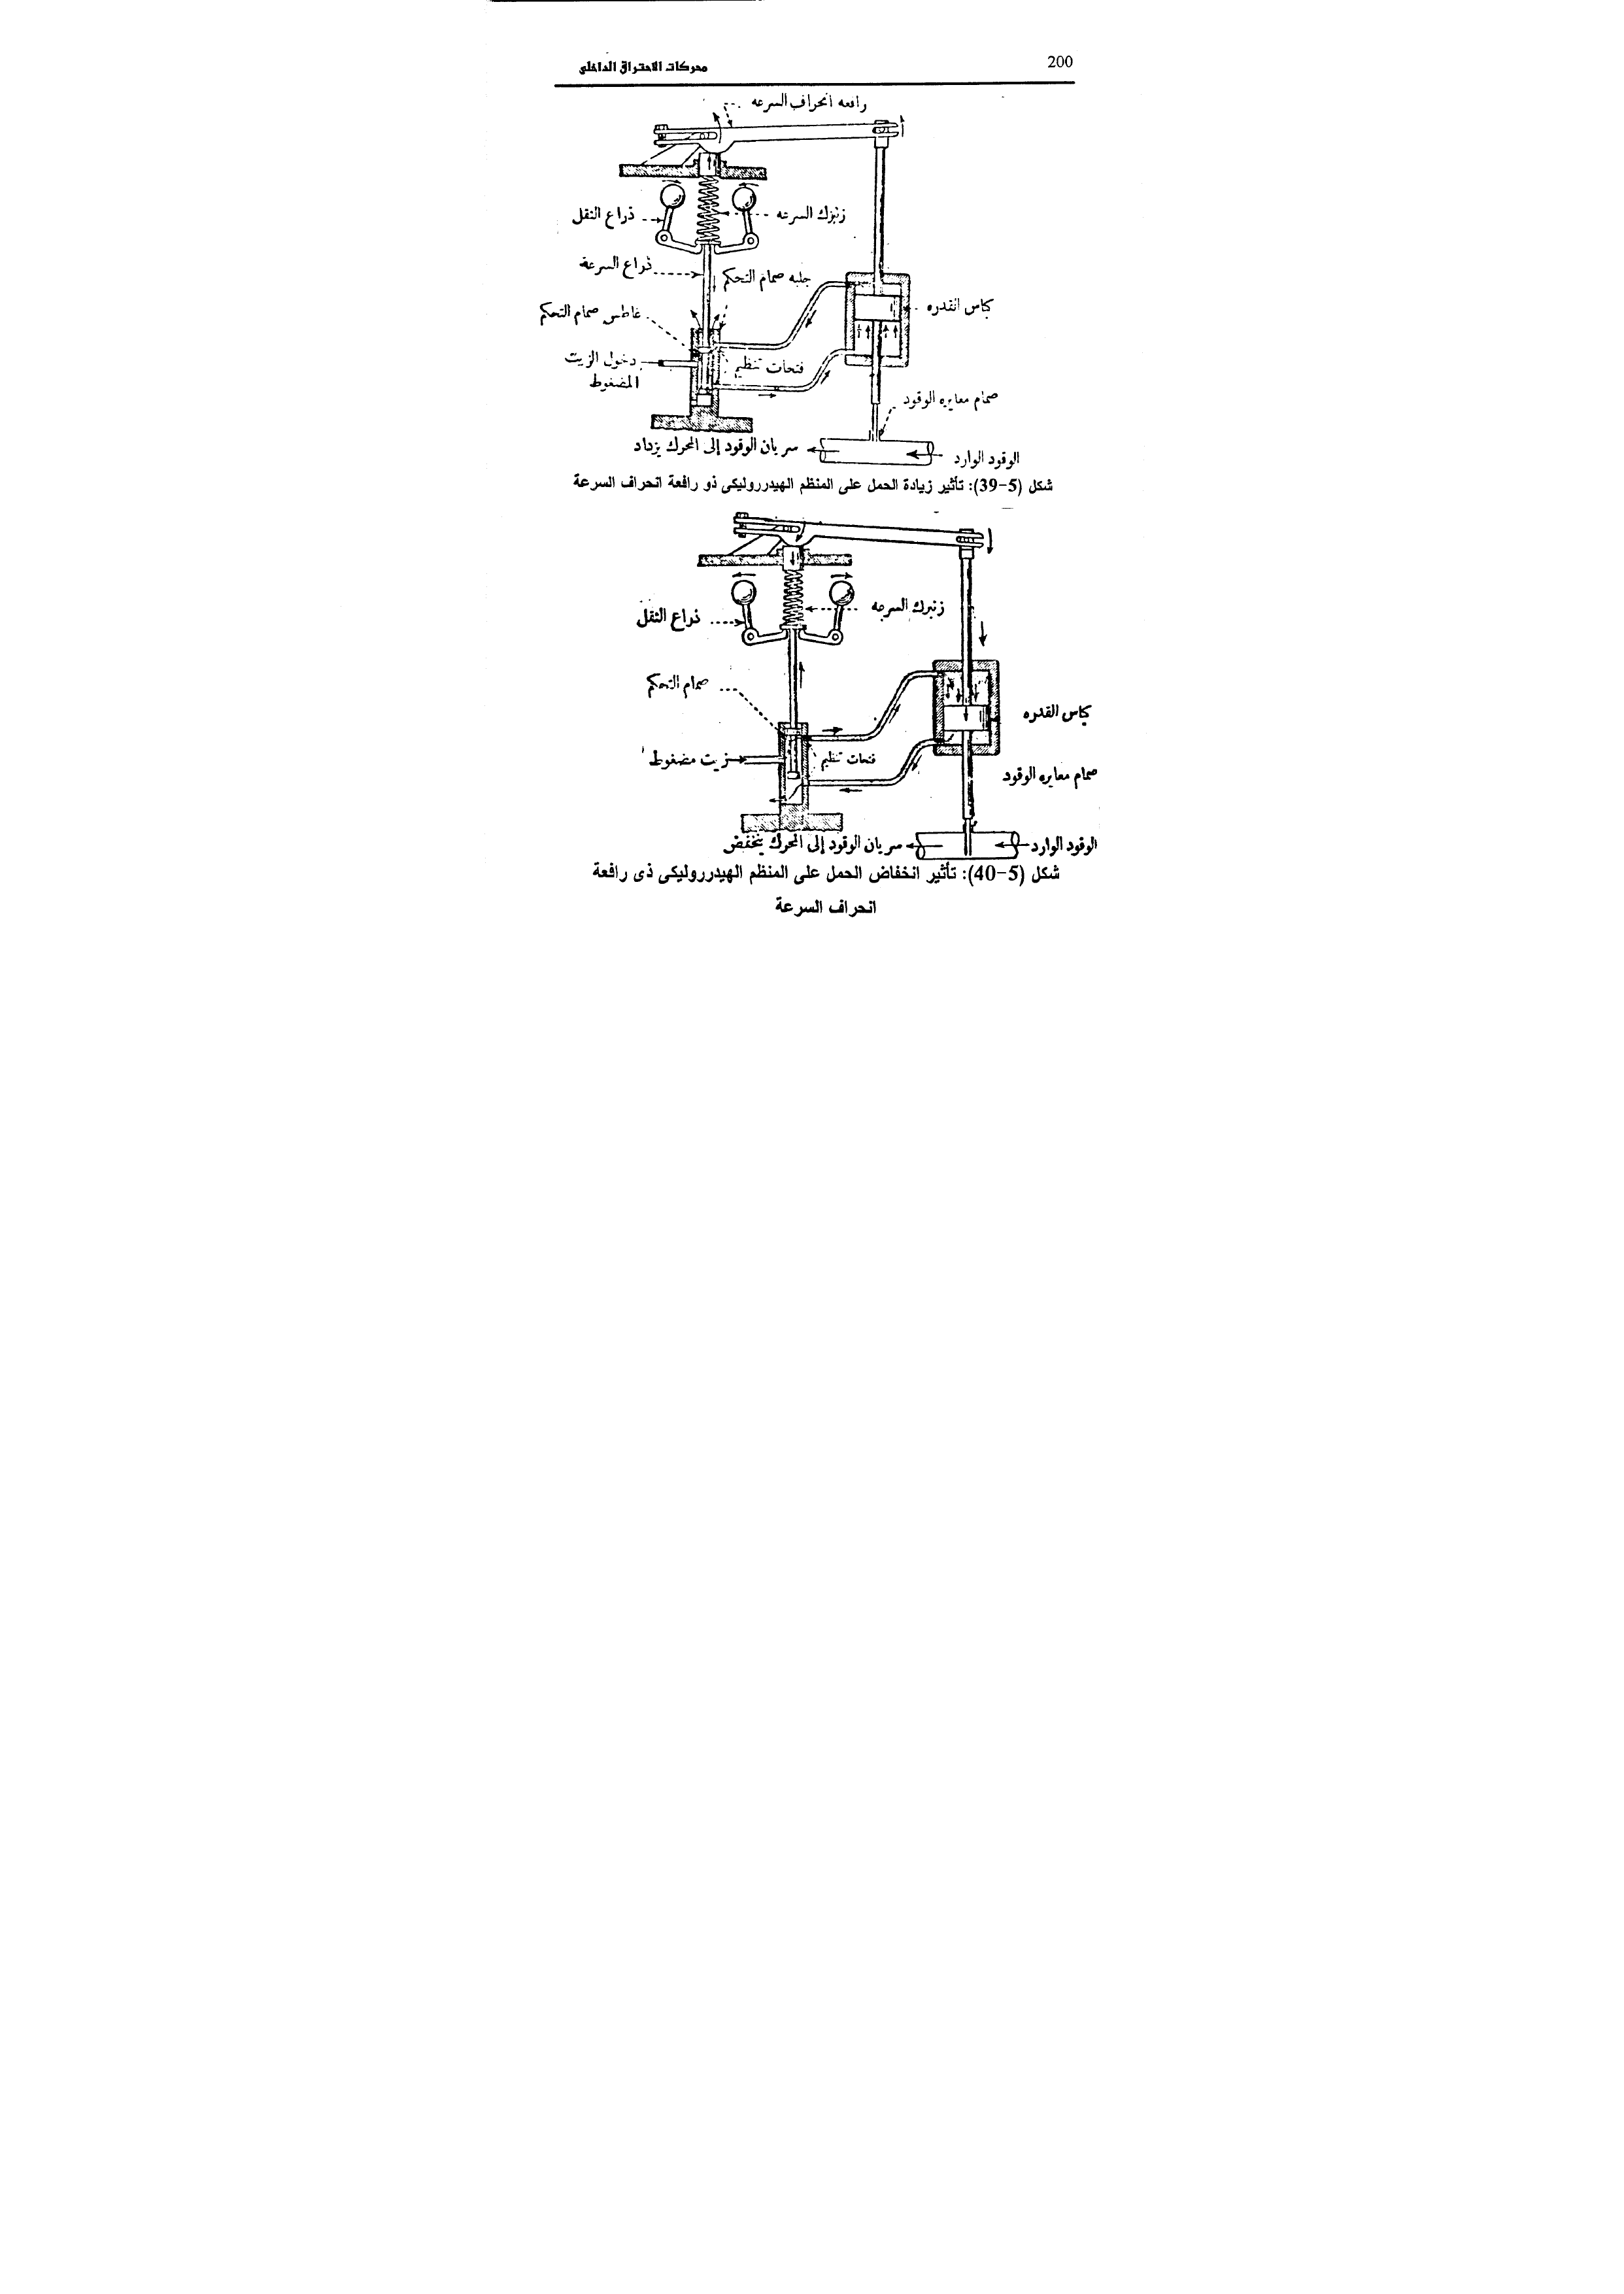 200
محركات الاحتراق الداخلى
رافعه انحراف السرعه
زنبرك السرعه
ذراع الثقل
ذراع السرعة
جلبه صمام التحكم
غاطس صمام التحكم
كباس القدره
دخول الزيت
المضغوط
فتحات تنظيم
صمام معايره الوقود
سريان الوقود إلى المحرك يزداد
الوقود الوارد
شكل (5-39): تأثير زيادة الحمل على المنظم الهيدروليكى ذو رافعة انحراف السرعة
زنبرك السرعه
ذراع الثقل
صمام التحكم
كباس القدره
زيت مضغوط
فتحات تنظيم
صمام معايره الوقود
الوقود الوارد
سريان الوقود إلى المحرك ينخفض
شكل (5-40): تأثير انخفاض الحمل على المنظم الهيدروليكى ذى رافعة
انحراف السرعة